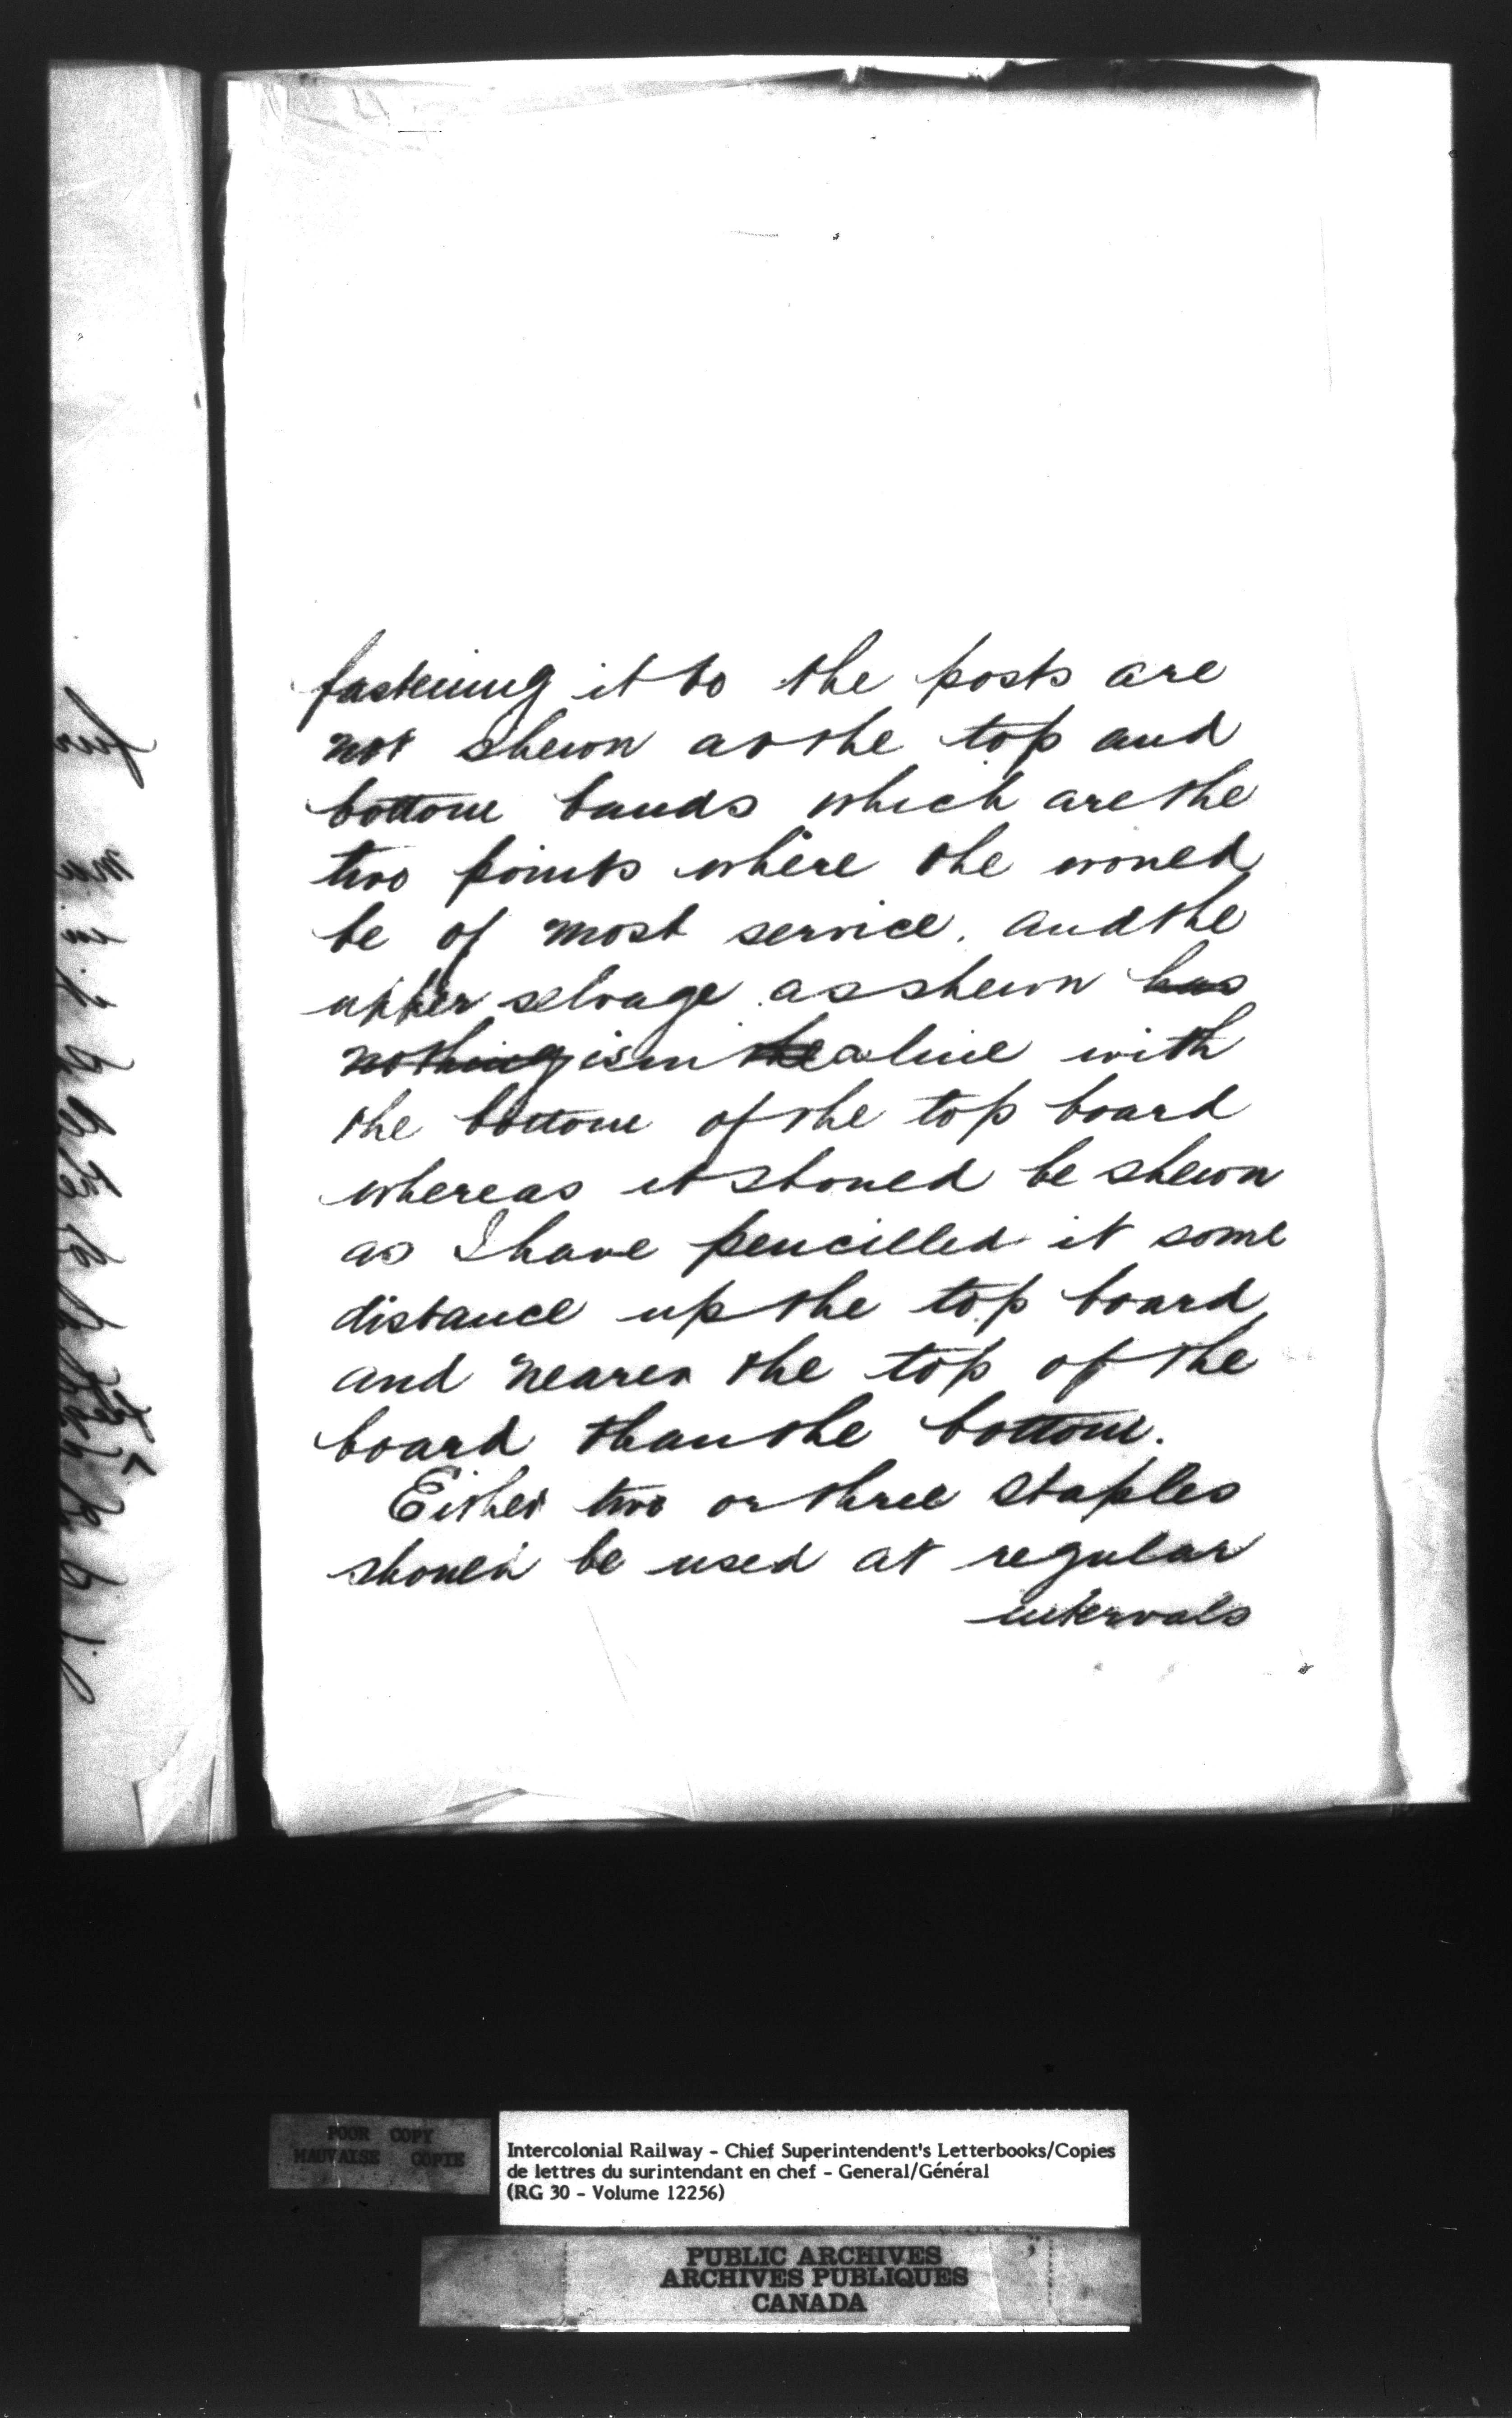 fastening it to the posts are
not shewn at the top and
bottom bands which are the
two points where the would
be of most service. and the
upper selvage as shewn has
nothing is in the a line with
the bottom of the top board
whereas it should be shewn
as I have pencilled it some
distance up the top board
and nearer the top of the
board than the bottom.
Either two or three staples
should be used at regular
intervals
POOR COPY
MAUVAISE COPIE
Intercolonial Railway - Chief Superintendent's Letterbooks/Copies
de lettres du surintendant en chef - General/Général
(RG 30 - Volume 12256)
PUBLIC ARCHIVES
ARCHIVES PUBLIQUES
CANADA